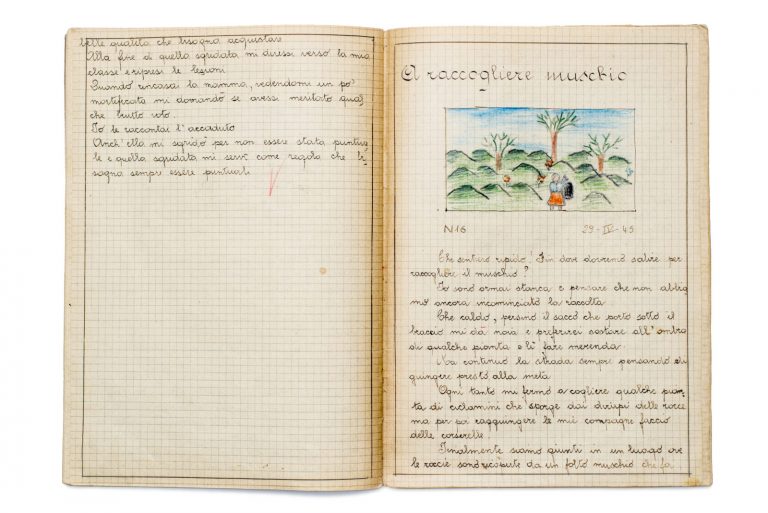 belle qualità che bisogna acquistare
Alla fine di quella sgridata mi diressi verso la mia
classe e ripresi le lezioni
Quando rincasai la mamma, vedendomi un po'
mortificata mi domandò se avessi meritato qual-
che brutto voto.
Io le raccontai l'accaduto
Anch'Ella mi sgridò per non essere stata puntua-
le e quella sgridata mi servì come regola che bi-
sogna sempre essere puntuali
A raccogliere muschio
N 16 29-IV-45
Che sentiero ripido! Fin dove dovremo salire per
raccogliere il muschio?
Io sono ormai stanca e pensare che non abbia-
mo ancora incominciato la raccolta
Che caldo, persino il sacco che porto sotto il
braccio mi dà noia e preferirei sostare all'ombra
di qualche pianta e lì fare merenda.
Ma continuo la strada sempre pensando di
giungere presto alla meta
Ogni tanto mi fermo a cogliere qualche pian-
ta di ciclamini che sporge dai dirupi delle rocce
ma per poi raggiungere le mie compagne faccio
delle corserelle
Finalmente siamo giunti in un luogo ove
le roccie sono ricoperte da un folto muschio che fa